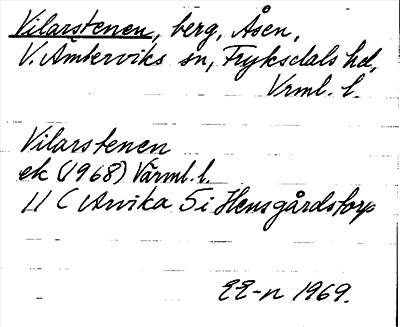 Vilarstenen, berg, Åsen,
V. Ämterviks sn, Fryksdals hd,
Vrml. l.
Vilarstenen
ek (1968) Värml. l.
11 C Arvika 5 i Hensgårdstorp
EE-n 1969.